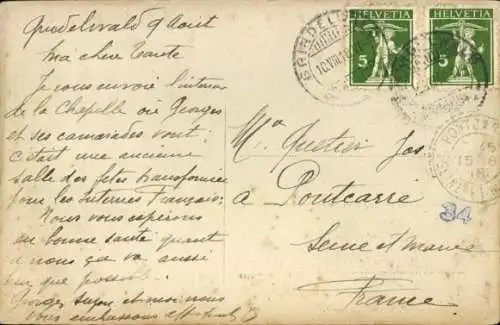 Grindelwald 9 Aout
Ma chere Tante
Je vous envoie l'interieur
de la Chapelle où Georges
et ses camarades vont;
c'était une ancienne
salle des fêtes transformée
pour les Internes Français.
Nous vous espérons
en bonne santé quant
à nous ça va aussi
bien que possible.
Georges Suzon et moi nous
vous embrassons
HELVETIA
5
HELVETIA
5
GRINDELWALD
10.VIII.16
Quetier Jos
A Pontcarré
Seine et Marne
France
34